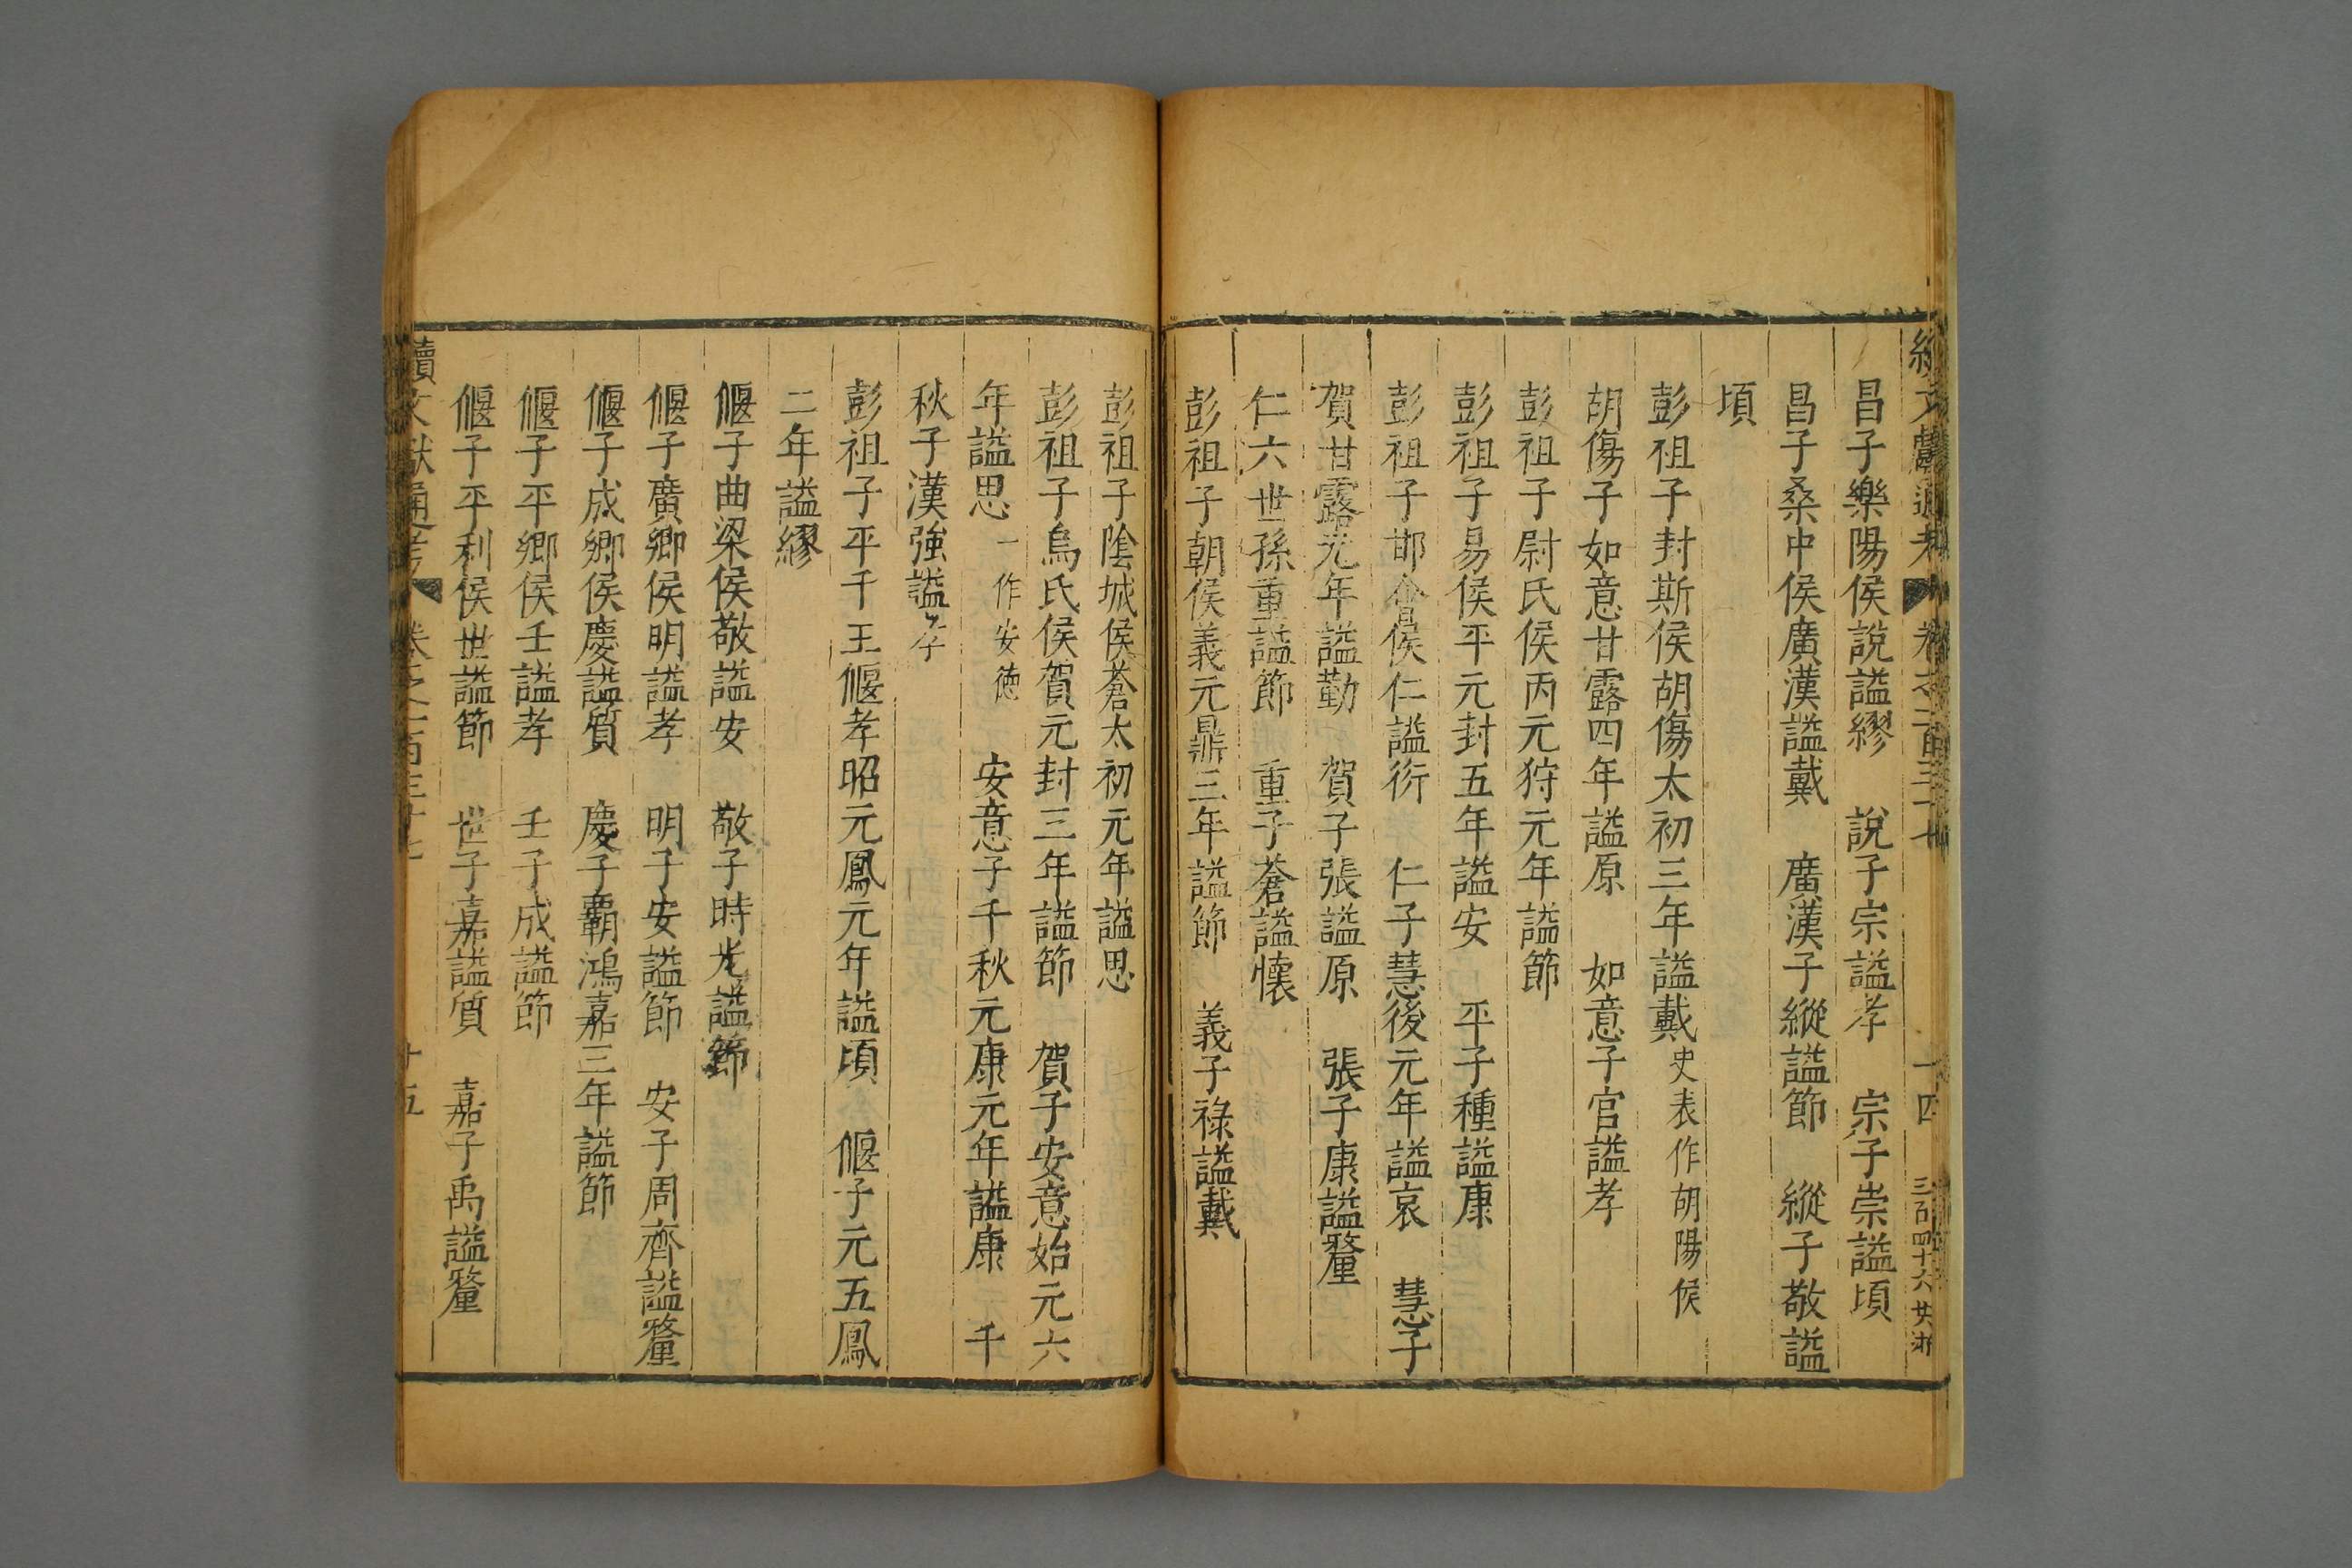 續文獻通考 卷之一百三十七 十四
昌子樂陽侯說謚繆 說子宗謚孝 宗子崇謚頃
昌子桑中侯廣漢謚戴 廣漢子縱謚節 縱子敬謚
頃
彭祖子封斯侯胡傷太初三年謚戴史表作胡陽侯
胡傷子如意甘露四年謚原 如意子官謚孝
彭祖子尉氏侯丙元狩元年謚節
彭祖子易侯平元封五年謚安 平子種謚康
彭祖子邯會侯仁謚衍 仁子慧後元年謚哀 慧子
賀甘露元年謚勤 賀子張謚原 張子康謚釐
仁六世孫重謚節 重子蒼謚懷
彭祖子朝侯義元鼎三年謚節 義子祿謚戴
彭祖子陰城侯蒼太初元年謚思
彭祖子烏氏侯賀元封三年謚節 賀子安意始元六
年謚思一作安德 安意子千秋元康元年謚康 千
秋子漢強謚孝
彭祖子平千王偃孝昭元鳳元年謚頃 偃子元五鳳
二年謚繆
偃子曲梁侯敬謚安 敬子時光謚節
偃子廣鄉侯明謚孝 明子安謚節 安子周齊謚釐
偃子成鄉侯慶謚質 慶子霸鴻嘉三年謚節
偃子平鄉侯壬謚孝 壬子成謚節
偃子平利侯世謚節 世子嘉謚質 嘉子禹謚釐
續文獻通考 卷之一百三十七 十五